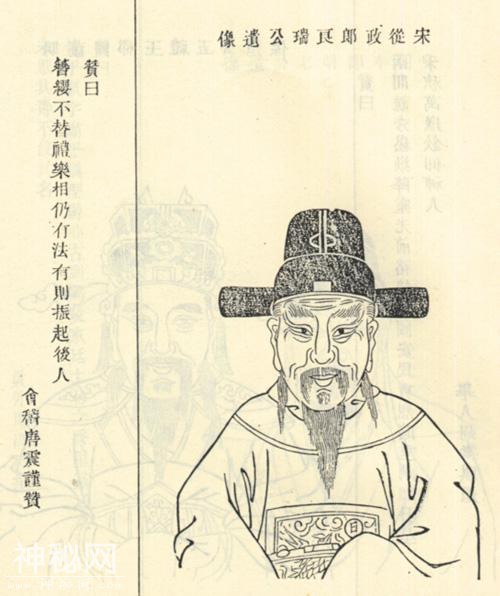 宋從政郎良瑞公遺像
贊曰
簪纓不替禮樂相仍有法有則振起後人
會稽唐震謹贊
神秘网